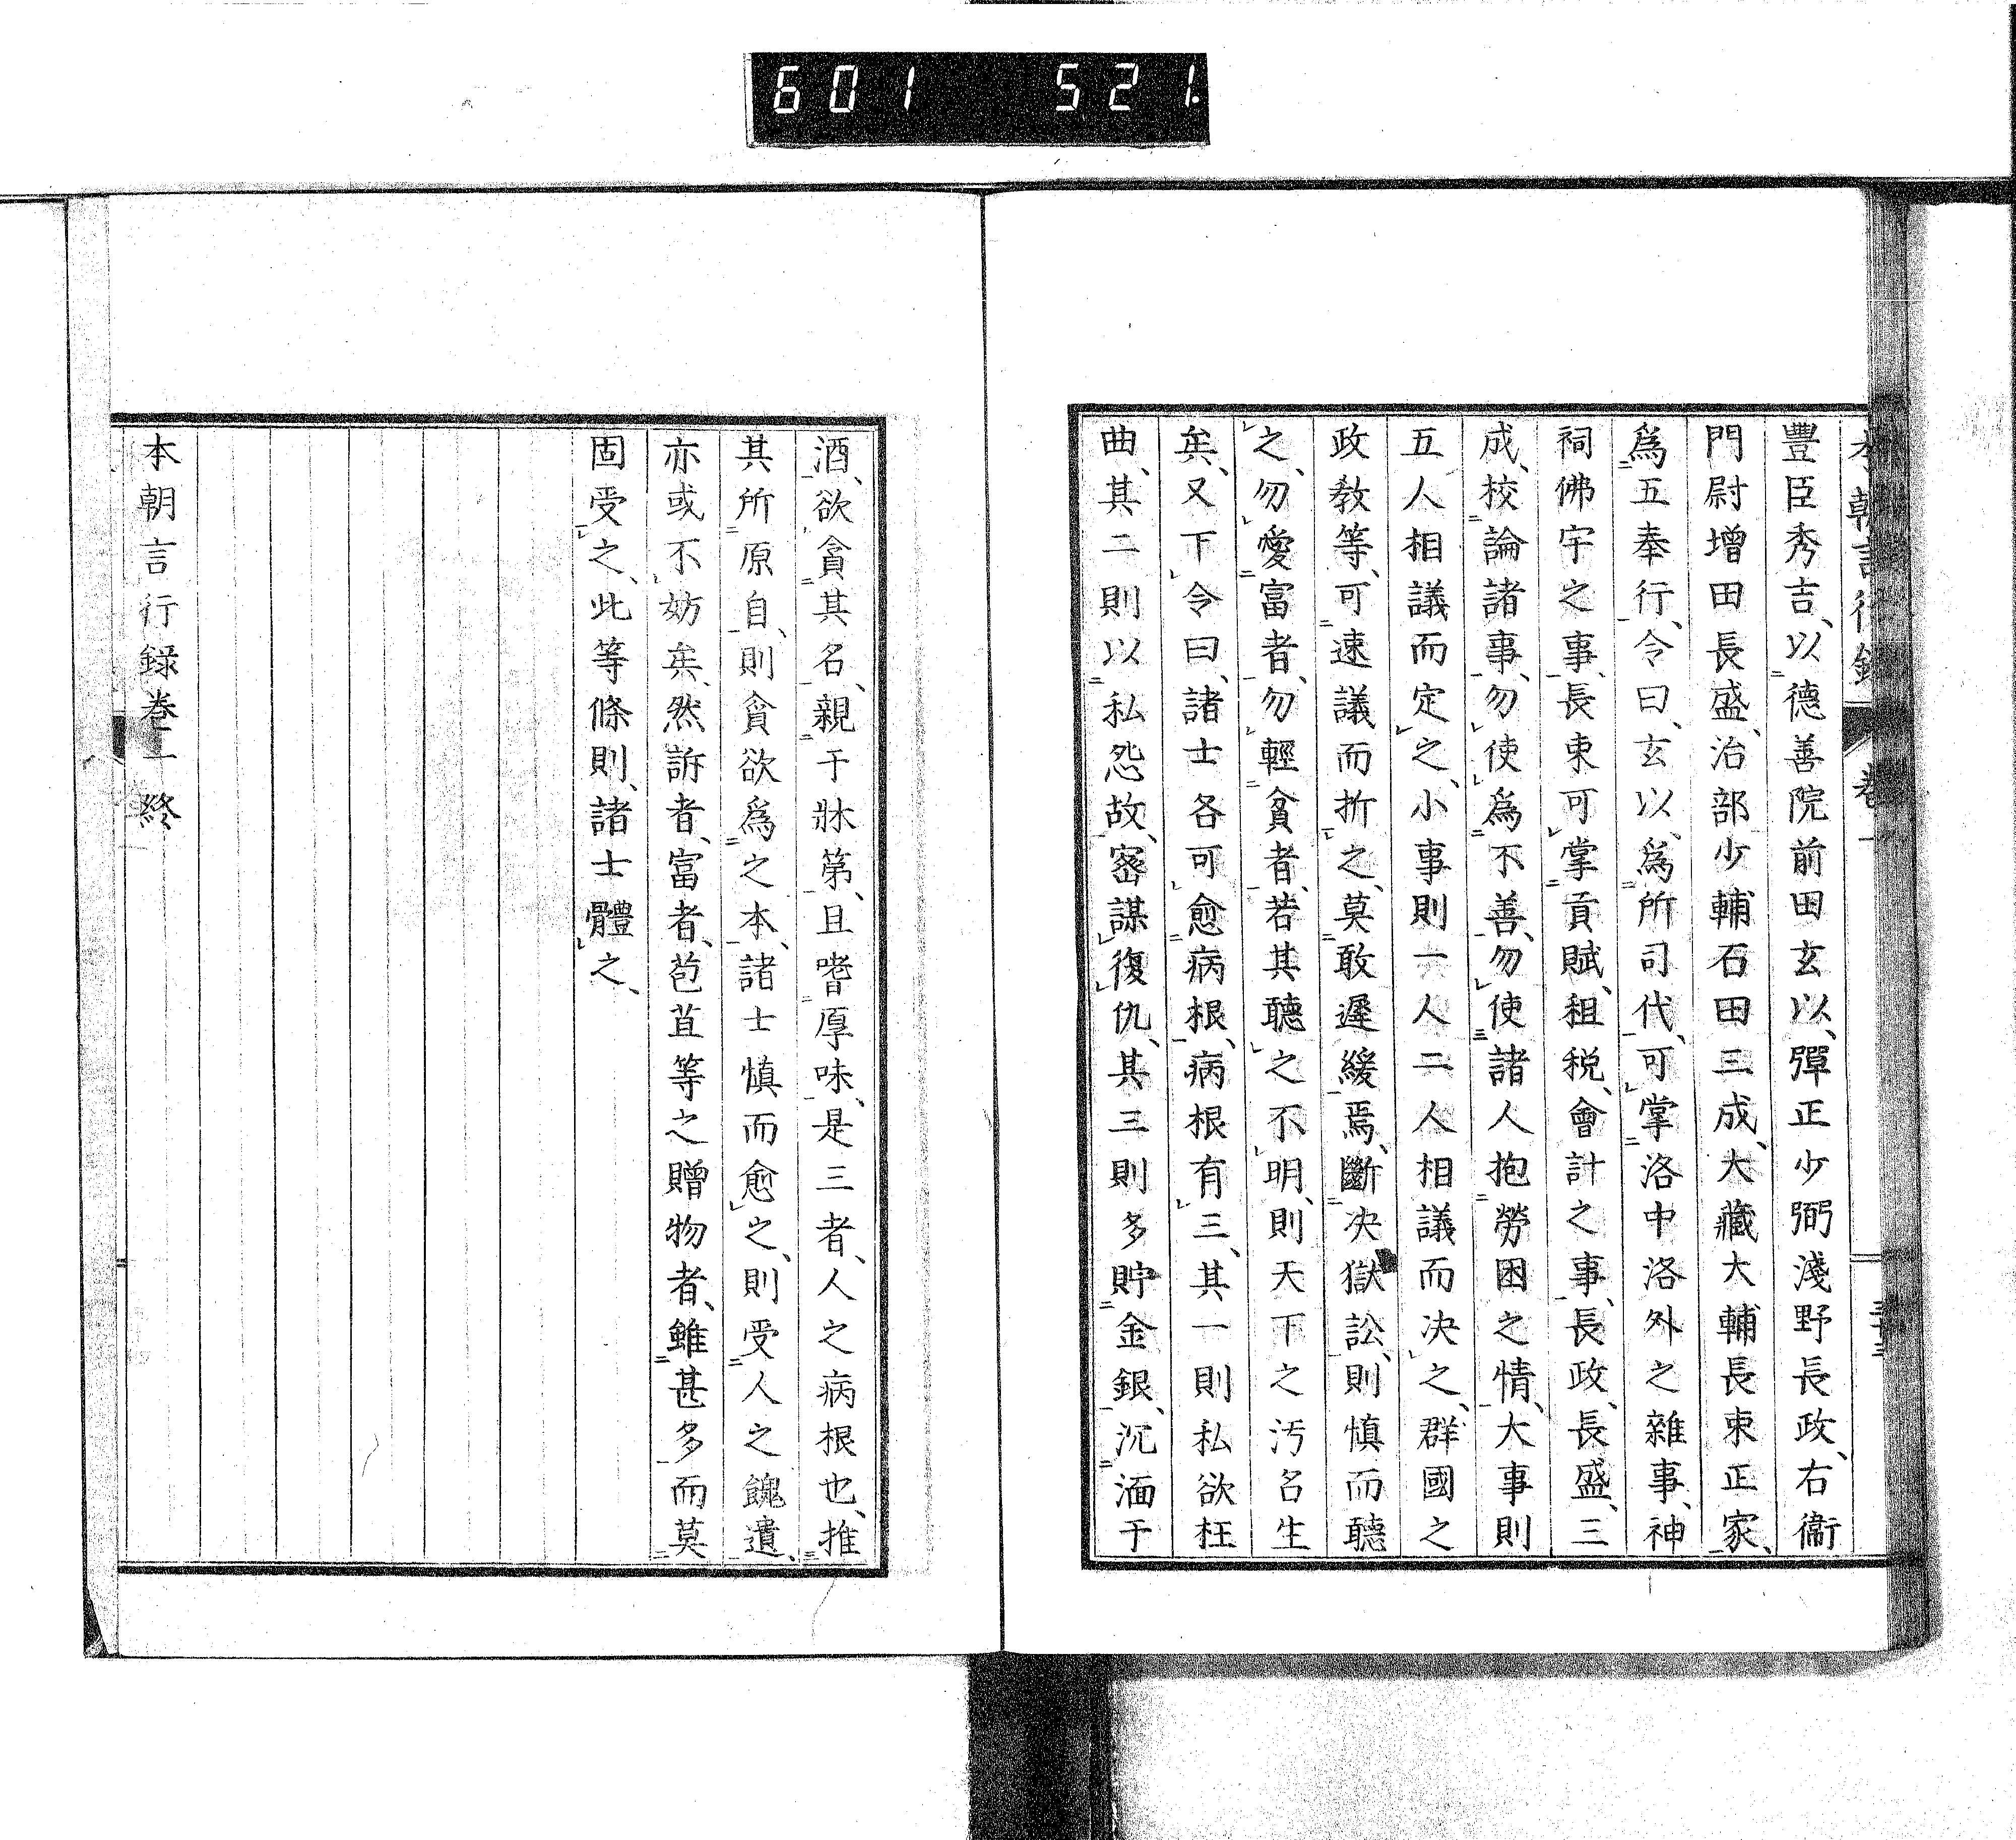 601 521.
豐臣秀吉、以德善院前田玄以、彈正少弼淺野長政、右衞
門尉增田長盛、治部少輔石田三成、大藏大輔長束正家、
爲五奉行、令曰、玄以、爲所司代、可掌洛中洛外之雜事、神
祠佛宇之事、長束可掌貢賦、租税、會計之事、長政、長盛、三
成、校論諸事、勿使爲不善、勿使諸人抱勞困之情、大事則
五人相議而定之、小事則一人二人相議而决之、群國之
政教等、可速議而折之、莫敢遲緩焉、斷决獄訟、則慎而聽
之、勿愛富者、勿輕貧者、若其聽之不明、則天下之汚名生
矣、又下令曰、諸士各可愈病根、病根有三、其一則私欲枉
曲、其二則以私怨故、密謀復仇、其三則多貯金銀、沉湎于
酒、欲貪其名、親于牀第、且嗜厚味、是三者、人之病根也、推
其所原自、則貪欲爲之本、諸士慎而愈之、則受人之餽遺、
亦或不妨矣、然訴者、富者、苞苴等之贈物者、雖甚多而莫
固受之、此等條則、諸士體之、
本朝言行録卷一終